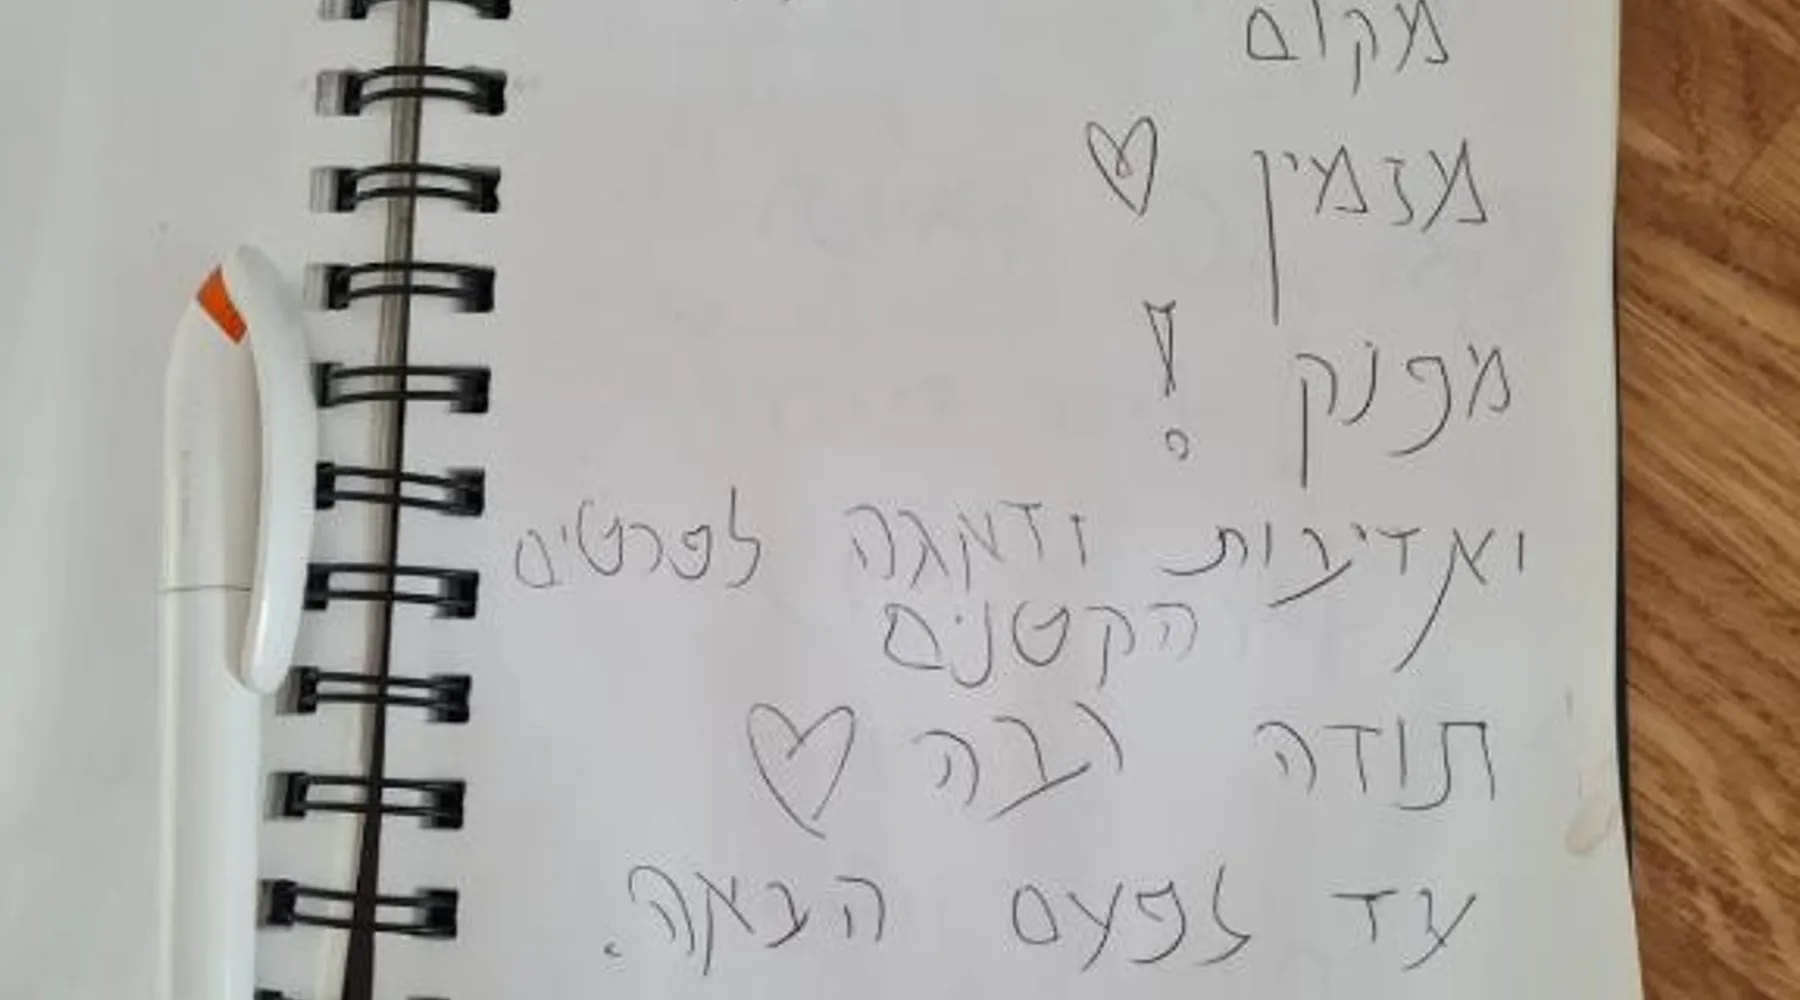 מקום
מזמין ♡
מפנק !
ואדיבות ודאגה לפרטים
הקטנים
תודה רבה ♡
עד לפעם הבאה.